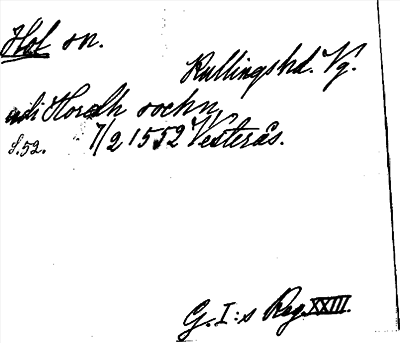 Hol sn.
Kullingshd. Vg.
udi Horælh sochn
s.52. 7/2 1552 Vesterås.
G. I:s Reg. XXIII.